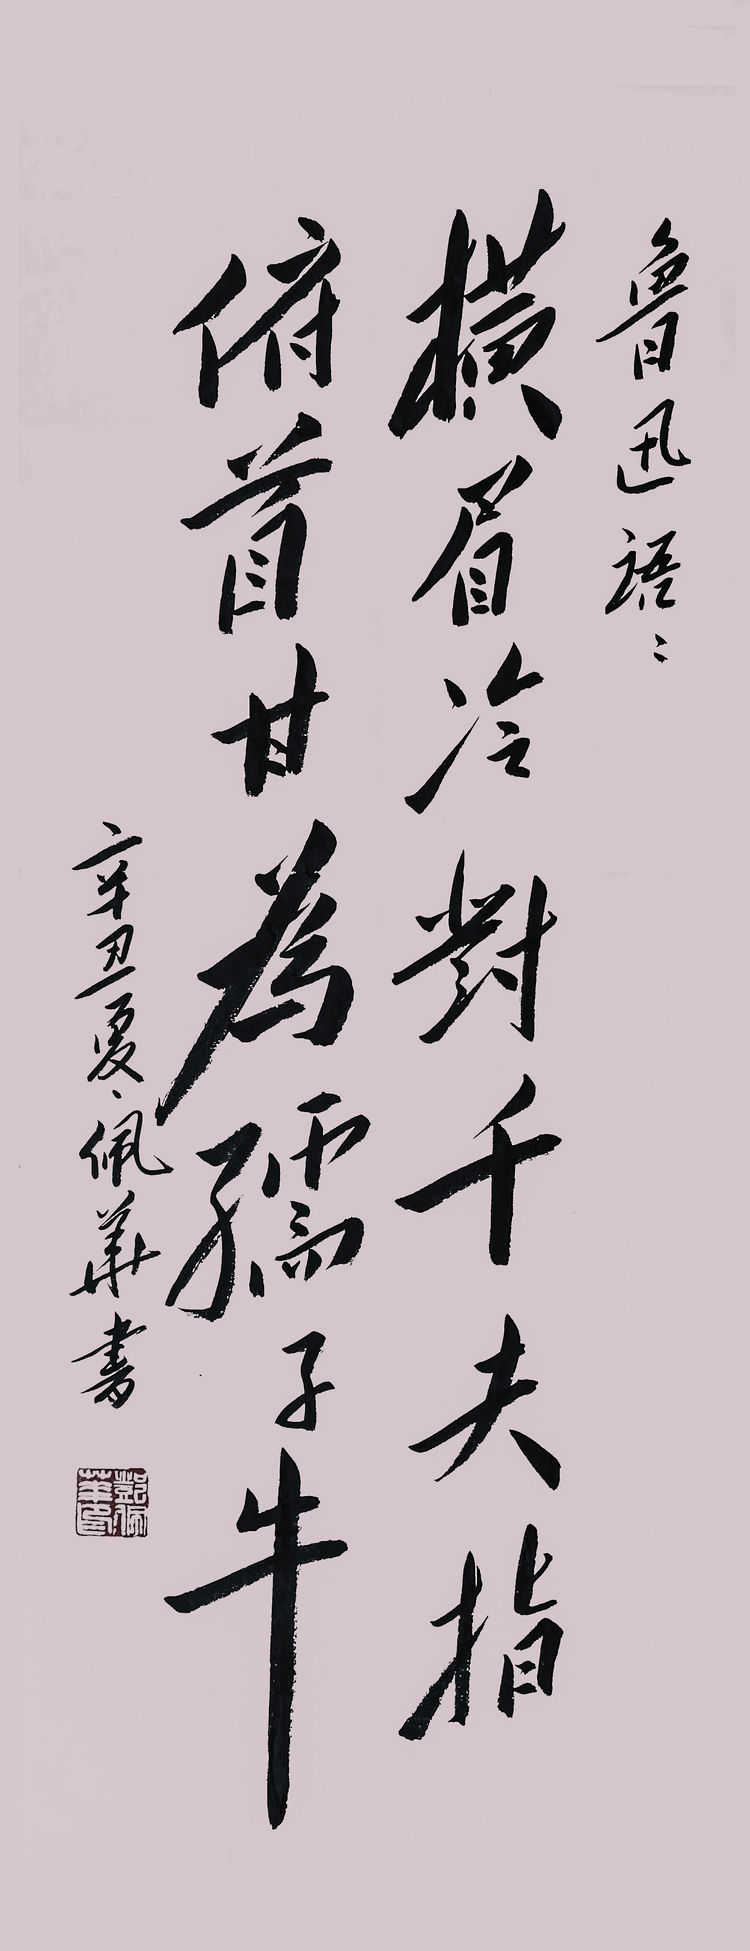 魯迅語:
橫眉冷對千夫指
俯首甘為孺子牛
辛丑夏、佩華書
鄧佩華印